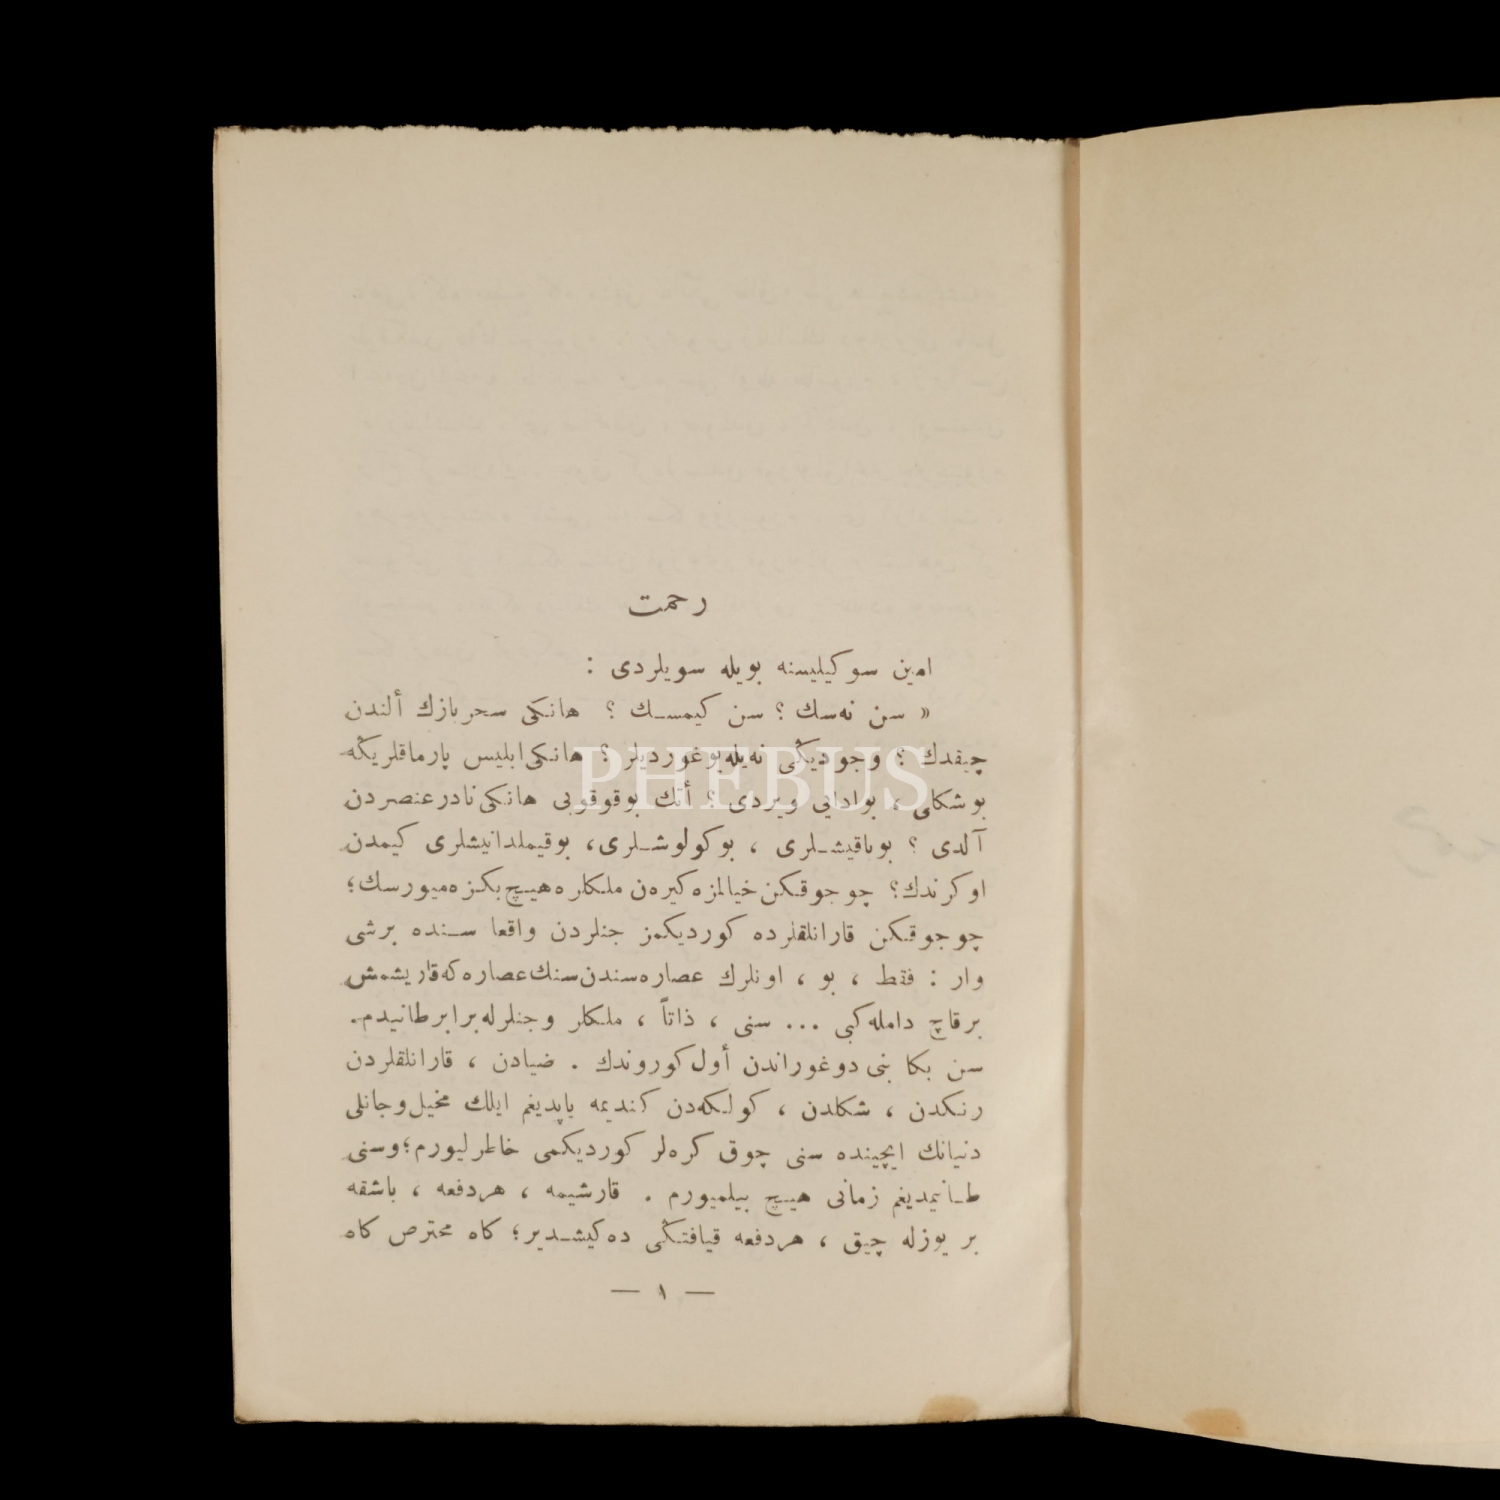 رحمت
امین سوکیلیسنه بویله سویلردی :
« سن نه‌سك ؟ سن کیمسك ؟ هانکی سحربازك ألندن
چیقدك ؟ وجودیڭی نه‌یله یوغوردیلر ؟ هانکی ابلیس پارماقلریڭه
بو شکلی ، بو ادایی ویردی ؟ أتك بو قوقویی هانکی نادر عنصردن
آلدی ؟ بو باقیشلری ، بو کولوشلری، بو قیملدانیشلری کیمدن
اوکرندك؟ چوجوقکن خیالمزه کیره‌ن ملکلره هیچ بکزه‌میورسك؛
چوجوقکن قارانلقلرده کوردیکمز جنلردن واقعا سنده برشی
وار : فقط ، بو ، اونلرك عصاره‌سندن سنك عصاره‌که قاریشمش
برقاچ دامله کبی ... سنی ، ذاتاً ، ملکلر وجنلرله برابر طانیدم.
سن بکا بنی دوغوراندن أول کوروندك . ضیادن ، قارانلقلردن
رنکدن ، شکلدن ، کولکه‌دن کندیمه یاپدیغم ایلك مخیل وجانلی
دنیانك ایچینده سنی چوق کره‌لر کوردیکمی خاطرلیورم؛ وسنی
طانیمدیغم زمانی هیچ بیلمیورم . قارشیمه ، هردفعه ، باشقه
بر یوزله چیق ، هردفعه قیافتکی ده‌کیشدیر؛ کاه محترص کاه
— ۱ —
PHEBUS